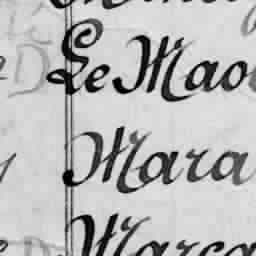 Le Mao
Mara
Marca